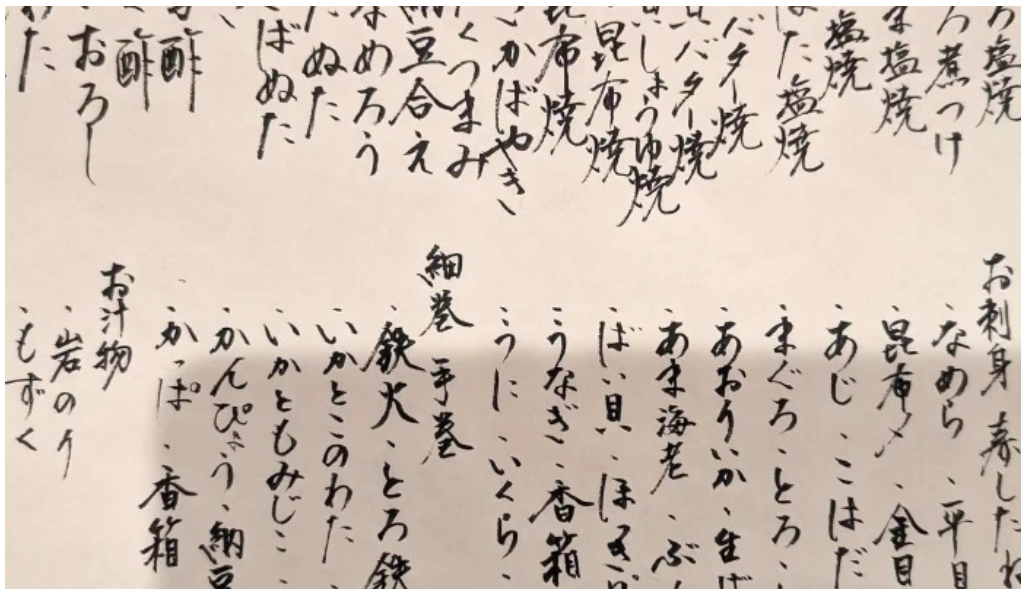 ろ塩焼
ろ煮つけ
ま塩焼
塩焼
た 塩焼
バター焼
バター焼
しょうゆ焼
昆布焼
昆布焼
いかばやき
くつまみ
納豆合え
なめろう
ぬた
ばぬた
酢
酢
おろし
た
お刺身 寿したね
・なめら ・平目
・昆布〆 ・金目
・あじ ・こはだ
・まぐろ・とろ・
・あおりいか・生ば
・あま海老・ぶ
・ばい貝・ほっき
・うなぎ・香箱
・うに・いくら・
細巻 手巻
・鉄火・とろ鉄
・いかとこのわた・
・いかともみじこ・
・かんぴょう・納豆
・かっぱ・香箱
お汁物
・岩のり
・もずく